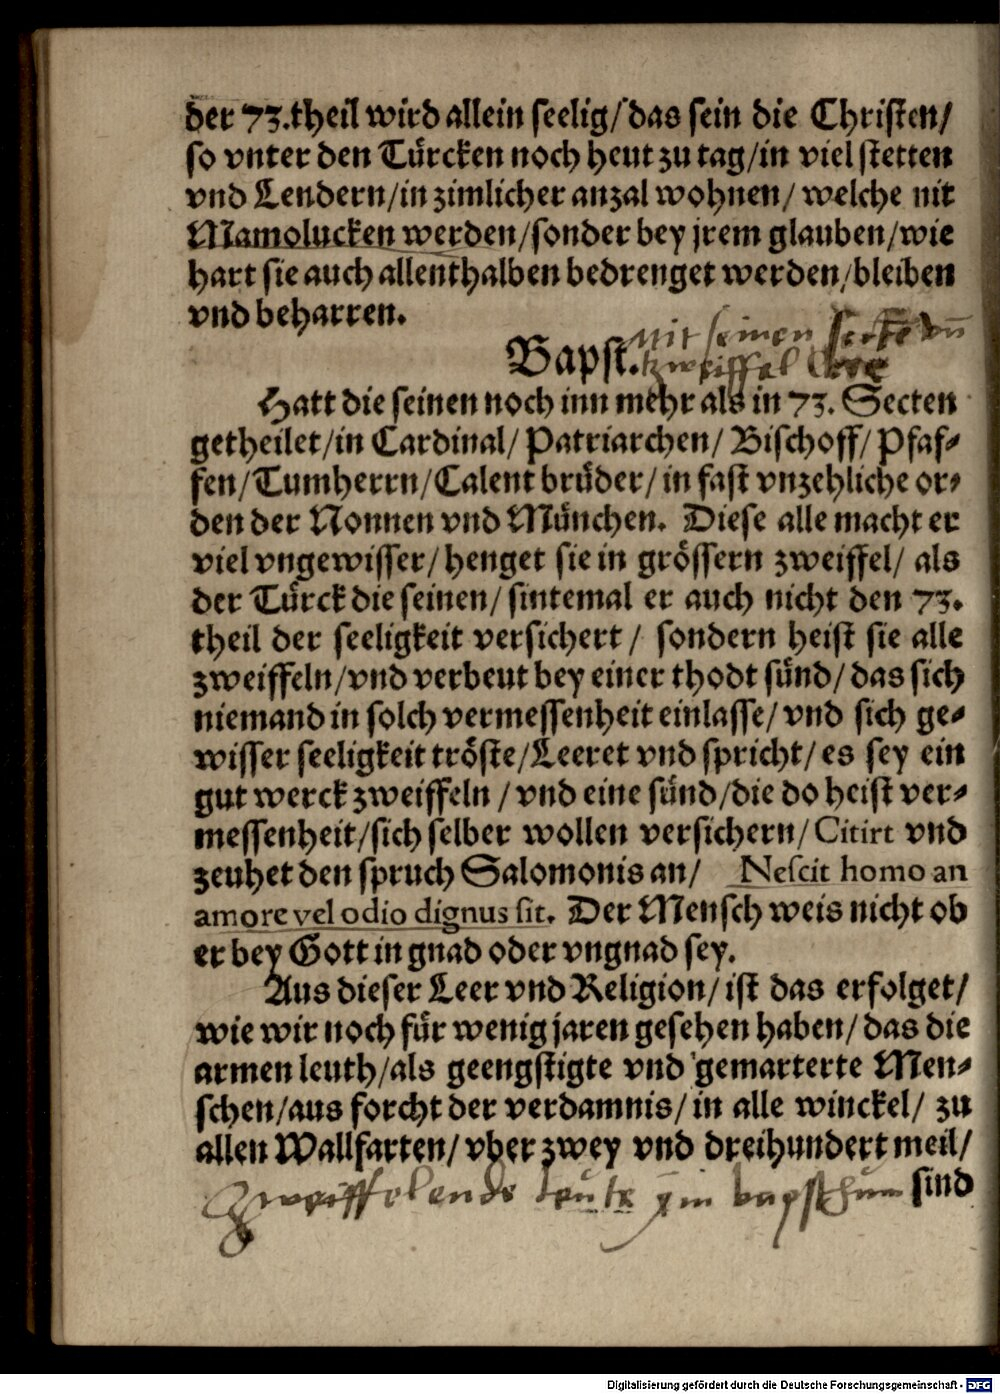 der 73.theil wird allein seelig/das sein die Christen/
so vnter den Türcken noch heut zu tag/in viel stetten
vnd Lendern/in zimlicher anzal wohnen/ welche nit
Mamolucken werden/sonder bey jrem glauben/wie
hart sie auch allenthalben bedrenget werden/bleiben
vnd beharren.
Mit seinen vñ
Bapst. zweiffel
Hatt die seinen noch inn mehr als in 73. Secten
getheilet/in Cardinal/ Patriarchen/ Bischoff/ Pfaf-
fen/Tumherrn/Calent brüder/ in fast vnzehliche or-
den der Nonnen vnd München. Diese alle macht er
viel vngewisser/ henget sie in grössern zweiffel/ als
der Türck die seinen/ sintemal er auch nicht den 73.
theil der seeligkeit versichert / sondern heist sie alle
zweiffeln/vnd verbeut bey einer thodt sünd/ das sich
niemand in solch vermessenheit einlasse/ vnd sich ge-
wisser seeligkeit tröste/Leeret vnd spricht/ es sey ein
gut werck zweiffeln / vnd eine sünd/die do heist ver-
messenheit/sich selber wollen versichern/ Citirt vnd
zeuhet den spruch Salomonis an/ Nescit homo an
amore vel odio dignus sit. Der Mensch weis nicht ob
er bey Gott in gnad oder vngnad sey.
Aus dieser Leer vnd Religion/ ist das erfolget/
wie wir noch für wenig jaren gesehen haben/ das die
armen leuth/als geengstigte vnd gemarterte Men-
schen/aus forcht der verdamnis/ in alle winckel/ zu
allen Wallfarten/ vber zwey vnd dreihundert meil/
sind
Zweiffelende leute im bapsthum
Digitalisierung gefördert durch die Deutsche Forschungsgemeinschaft - DFG